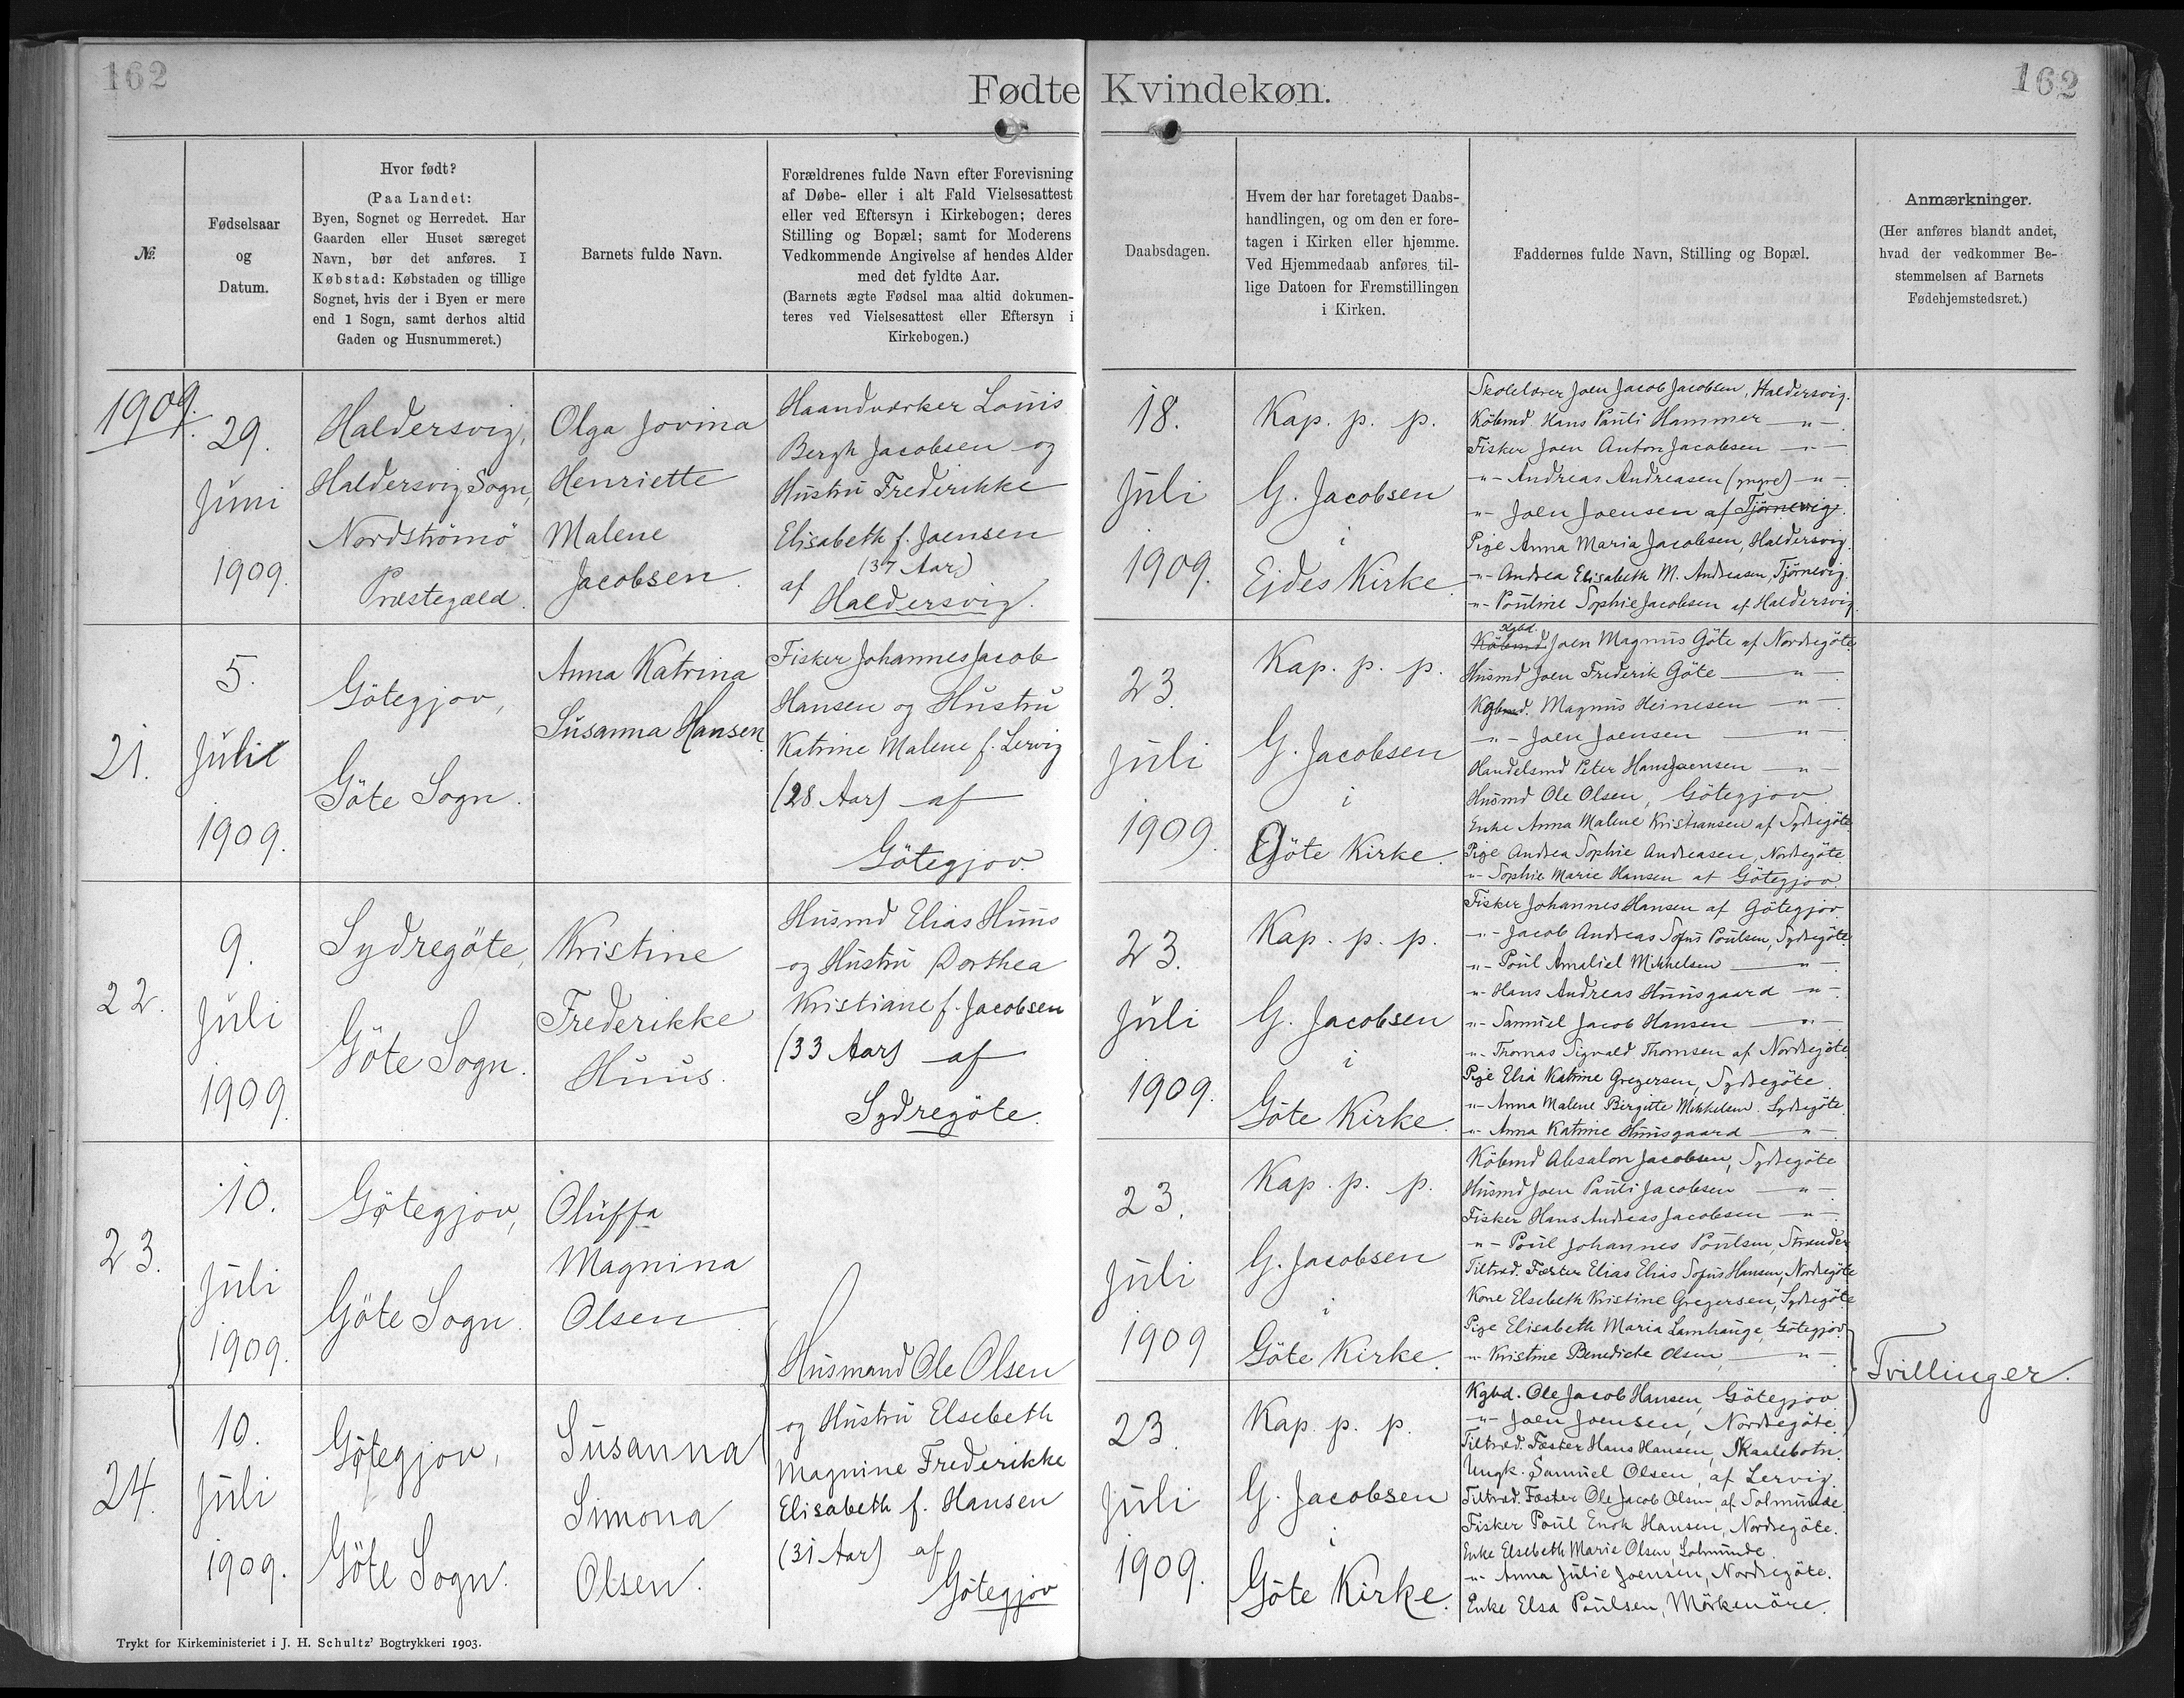 162
162
Fødte Kvindekøn.
№
Fødselsaar
og
Datum.
Hvor født?
(Paa Landet:
Byen, Sognet og Herredet. Har
Gaarden eller Huset særeget
Navn, bør det anføres. I
Købstad: Købstaden og tillige
Sognet, hvis der i Byen er mere
end 1 Sogn, samt derhos altid
Gaden og Husnummeret.)
Barnets fulde Navn.
Forældrenes fulde Navn efter Forevisning
af Døbe- eller i alt Fald Vielsesattest
eller ved Eftersyn i Kirkebogen; deres
Stilling og Bopæl; samt for Moderens
Vedkommende Angivelse af hendes Alder
med det fyldte Aar.
(Barnets ægte Fødsel maa altid dokumen-
teres ved Vielsesattest eller Eftersyn i
Kirkebogen.)
Daabsdagen.
Hvem der har foretaget Daabs-
handlingen, og om den er fore-
tagen i Kirken eller hjemme.
Ved Hjemmedaab anføres til-
lige Datoen for Fremstillingen
i Kirken.
Faddernes fulde Navn, Stilling og Bopæl.
Anmærkninger.
(Her anføres blandt andet,
hvad der vedkommer Be-
stemmelsen af Barnets
Fødehjemstedsret.)
1909.
29.
Juni
1909.
Haldersvig,
Haldersvig Sogn,
Nordströmö
Præstegæld.
Olga Jovina
Henriette
Malene
Jacobsen.
Haandværker Louis
Bergh Jacobsen og
Hustru Frederikke
Elisabeth f. Joensen
(37 Aar)
af Haldersvig.
18.
Juli
1909.
Kap. p. p.
G. Jacobsen
i
Ejdes Kirke.
Skolelærer Joen Jacob Jacobsen, Haldersvig.
Köbmd. Hans Pauli Hammer —"—.
Fisker Joen Anton Jacobsen —"—
-"- Andreas Andreasen (yngre) -"-.
-"- Joen Joensen af Tjörnevig.
Pige Anna Maria Jacobsen, Haldersvig.
-"- Andrea Elisabeth M. Andreasen, Tjörnevig.
-"- Pouline Sophie Jacobsen af Haldersvig.
21.
5.
Juli
1909.
Götegjov,
Göte Sogn.
Anna Katrina
Susanna Hansen.
Fisker Johannes Jacob
Hansen og Hustru
Katrine Malene f. Lervig
(28 Aar) af
Götegjov.
23.
Juli
1909.
Kap. p. p.
G. Jacobsen
i
Göte Kirke.
Kgbd.
Köbmd Joen Magnus Göte af Nordregöte
Husmd Joen Frederik Göte —"—.
Kgbmd. Magnus Heinesen —"—.
-"- Joen Joensen —"—.
Handelsmd Peter Hans Joensen —"—
Husmd Ole Olsen, Götegjov.
Enke Anna Malene Kristiansen af Sydregöte
Pige Andrea Sophie Andreasen, Nordregöte.
-"- Sophie Marie Hansen af Götegjov.
22.
9.
Juli
1909.
Sydregöte,
Göte Sogn.
Kristine
Frederikke
Huus.
Husmd Elias Huus
og Hustru Dorthea
Kristiane f. Jacobsen
(33 Aar) af
Sydregöte.
23.
Juli
1909.
Kap. p. p.
G. Jacobsen
i
Göte Kirke.
Fisker Johannes Hansen af Götegjov.
-"- Jacob Andreas Sofus Poulsen, Sydregöte.
-"- Poul Amaliel Mikkelsen —"—.
-"- Hans Andreas Huusgaard -"-.
-"- Samuel Jacob Hansen —"—.
-"- Thomas Sigvald Thomsen af Nordregöte.
Pige Elia Katrine Gregersen, Sydregöte.
-"- Anna Malene Birgitte Mikkelsen. Sydregöte.
-"- Anna Katrine Huusgaard —"—.
23.
10.
Juli
1909.
Götegjov,
Göte Sogn.
Oluffa
Magnina
Olsen
23.
Juli
1909
Kap. p. p.
G. Jacobsen
i
Göte Kirke.
Köbmd Absalon Jacobsen, Sydregöte
Husmd Joen Pauli Jacobsen —"—.
Fisker Hans Andreas Jacobsen —"—.
-"- Poul Johannes Poulsen, Strænder
Tiltræd. Fæster Elias Elias Sofus Hansen, Nordregöte
Kone Elsebeth Kristine Gregersen, Sydregöte
Pige Elisabeth Maria Lamhauge, Götegjov.
-"- Kristine Benedicte Olsen, —"—.
Tvillinger.
24.
10.
Juli
1909.
Götegjov,
Göte Sogn.
Susanna
Simona
Olsen.
Husmand Ole Olsen
og Hustru Elsebeth
Magnine Frederikke
Elisabeth f. Hansen
(31 Aar) af
Götegjov
23.
Juli
1909.
Kap. p. p.
G. Jacobsen
i
Göte Kirke.
Kgbd. Ole Jacob Hansen, Götegjov.
-"- Joen Joensen, Nordregöte.
Tiltræd. Fæster Hans Hansen, Skaalebotn.
Ungk. Samuel Olsen, af Lervig.
Tiltræd. Fæster Ole Jacob Olsen, af Solmunde.
Fisker Poul Enok Hansen, Nordregöte.
Enke Elsebeth Marie Olsen, Solmunde.
-"- Anna Julie Joensen, Nordregöte.
Enke Elsa Poulsen, Mörkenöre.
Trykt for Kirkeministeriet i J. H. Schultz' Bogtrykkeri 1903.